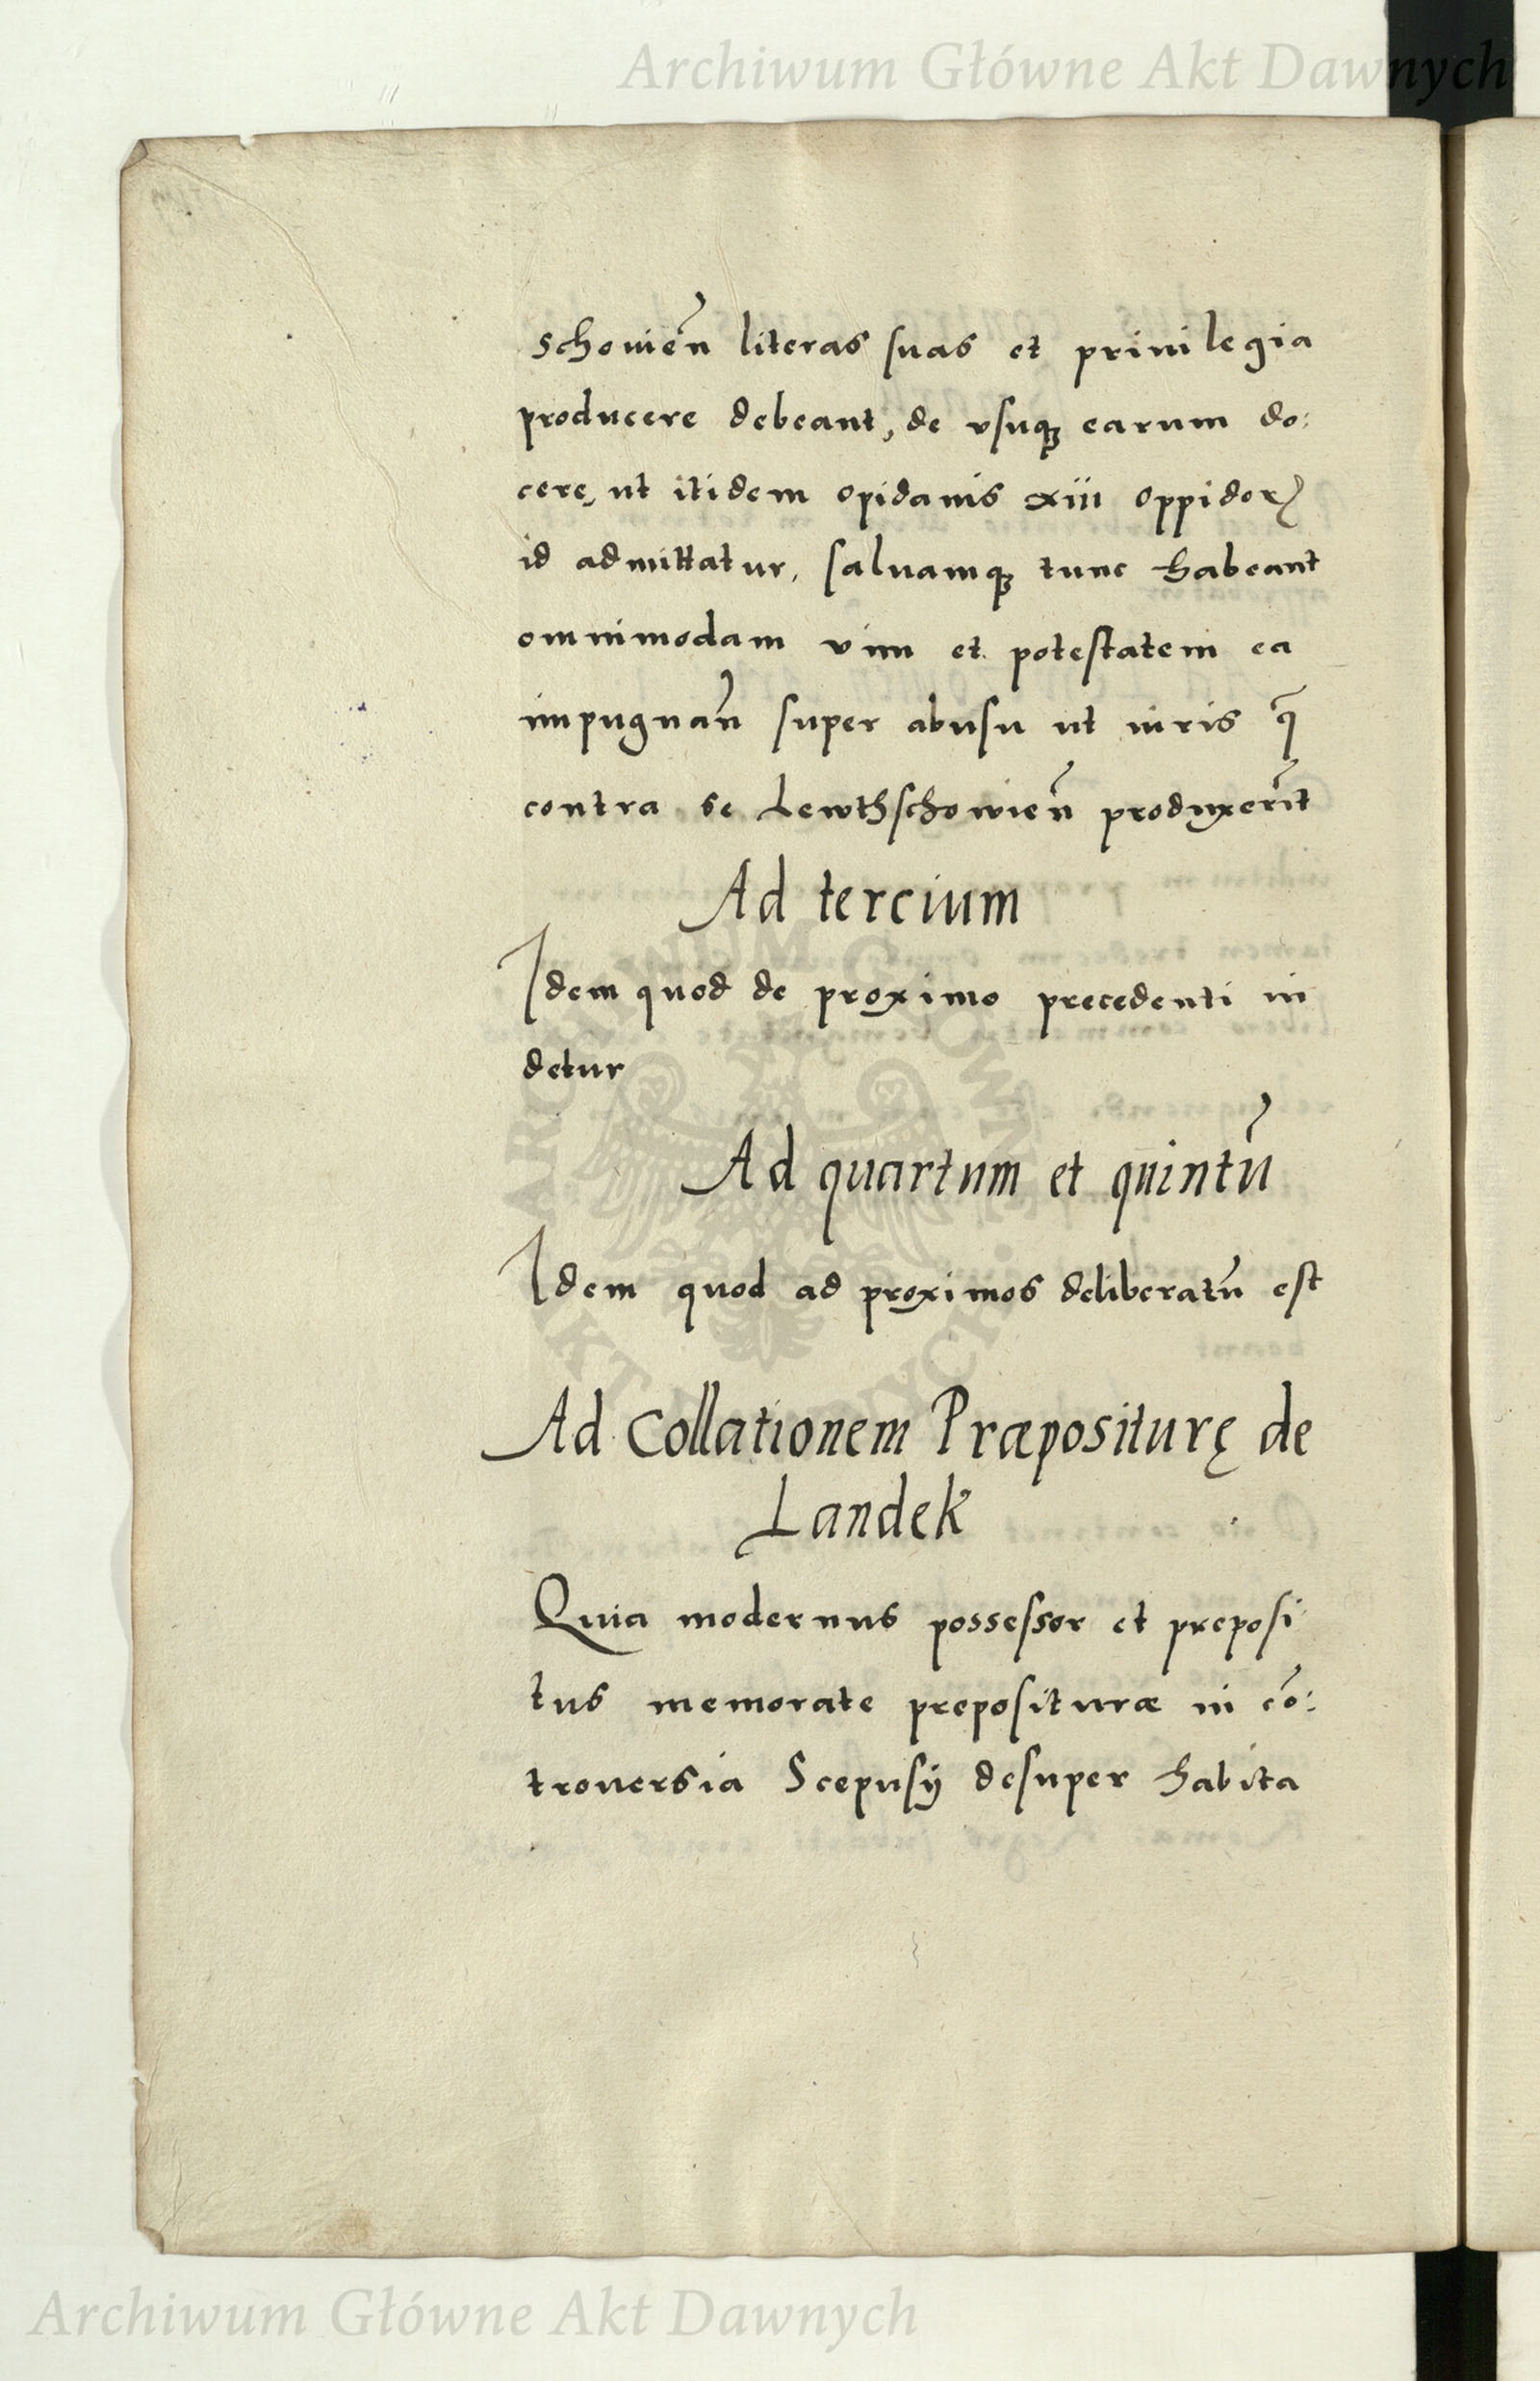 Archiwum Główne Akt Dawnych
schouień literas suas et priuilegia
producere debeant, de vsuqꝫ earum do:
cere, ut itidem opidanis xiii oppidorꝫ
id admittatur, saluamqꝫ tunc habeant
omnimodam vim et potestatem ea
impugnań super abusu ut iuris q̃
contra se Lewthschowień produxerīt
Ad tercium
Idem quod de proximo precedenti in
detur
Ad quartum et quintū
Idem quod ad proximos deliberatū est
Ad Collationem Præpositurę de
Landek
Quia modernus possessor et preposi
tus memorate prepositurae in cō:
trouersia Scepusÿ desuper habita
ARCHIWUM GŁÓWNE AKT DAWNYCH
Archiwum Główne Akt Dawnych